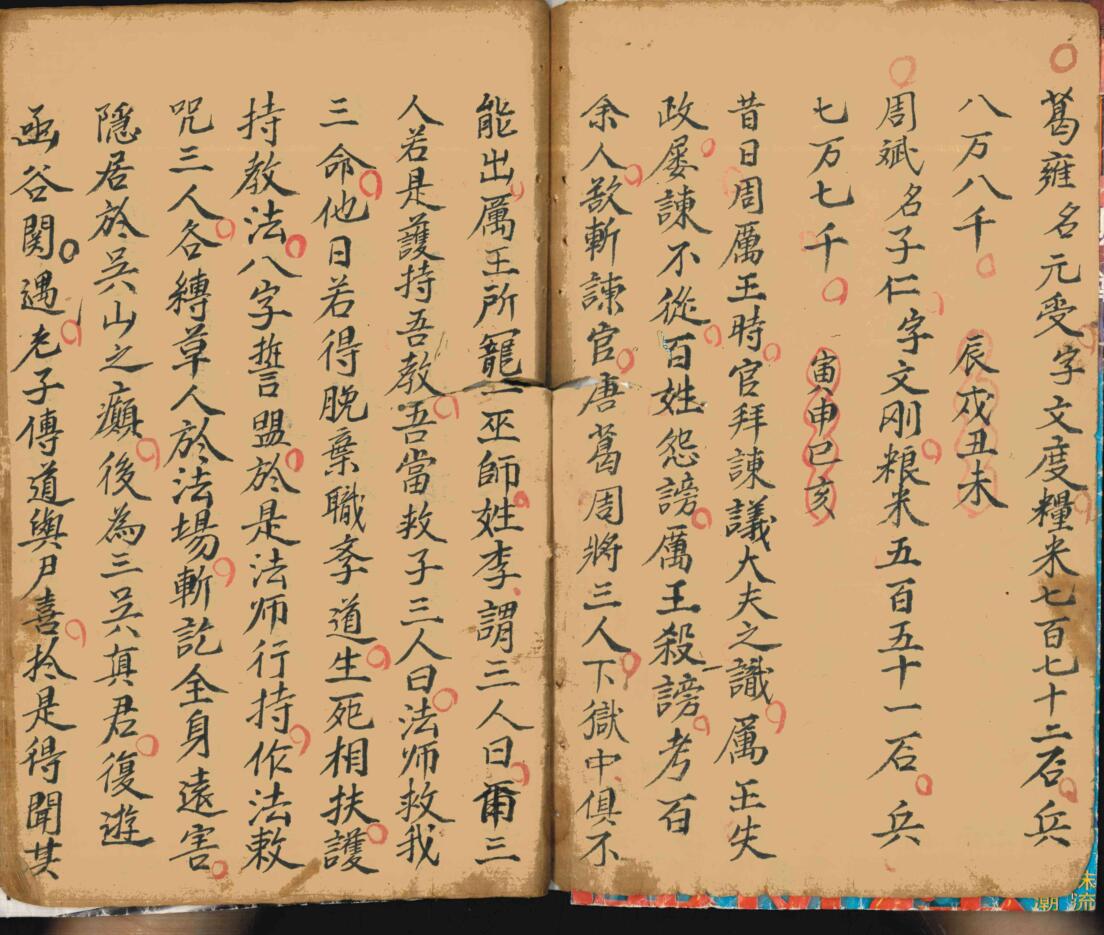 葛雍名元受字文度糧米七百七十二石兵
八万八千　辰戌丑未
周斌名子仁字文刚粮米五百五十一石兵
七万七千　寅申巳亥
昔日周厲王時官拜諫議大夫之識厲王失
政屡諫不從百姓怨謗厲王殺謗考百
余人欲斬諫官唐葛周將三人下獄中俱不
能出厲王所寵一巫師姓李謂三人曰爾三
人若是護持吾教吾當救子三人曰法师救我
三命他日若得脫棄職奉道生死相扶護
持教法八字誓盟於是法师行持作法敕
咒三人各縛草人於法場斬訖全身遠害
隱居於吴山之癲後為三吴真君復遊
函谷関遇老子傳道與尹喜於是得聞其
未
流
潮